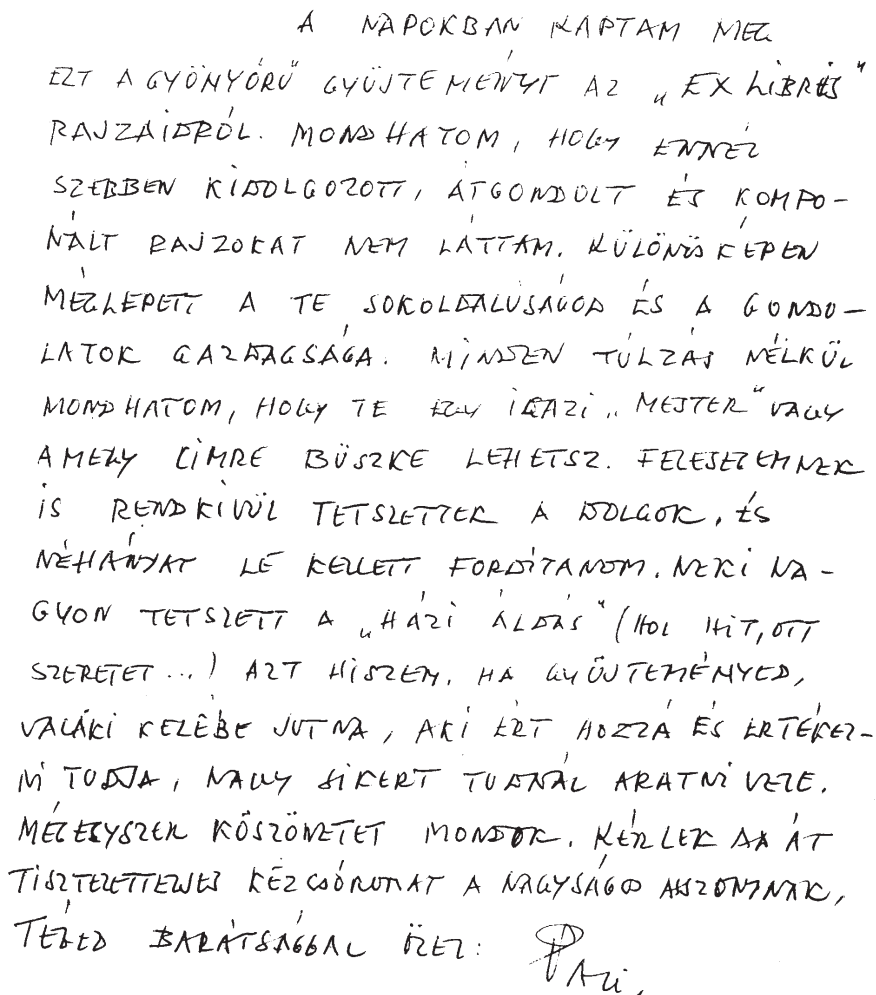 A NAPOKBAN KAPTAM MEG
EZT A GYÖNYÖRŰ GYŰJTEMÉNYT AZ „EX LIBRIS"
RAJZAIDRÓL. MONDHATOM, HOGY ENNÉL
SZEBBEN KIDOLGOZOTT, ÁTGONDOLT ÉS KOMPO-
NÁLT RAJZOKAT NEM LÁTTAM. KÜLÖNÖSKÉPEN
MEGLEPETT A TE SOKOLDALUSÁGOD ÉS A GONDO-
LATOK GAZDAGSÁGA. MINDEN TÚLZÁS NÉLKÜL
MONDHATOM, HOGY TE EGY IGAZI „MESTER" VAGY
AMELY CIMRE BÜSZKE LEHETSZ. FELESEGEMNEK
IS RENDKIVÜL TETSZETTEK A DOLGOK, ÉS
NÉHÁNYAT LE KELLETT FORDÍTANOM. NEKI NA-
GYON TETSZETT A „HÁZI ÁLDÁS" (HOL HIT, OTT
SZERETET ...) AZT HISZEM, HA GYŰJTEMÉNYED,
VALAKI KEZÉBE JUTNA, AKI ÉRT HOZZÁ ÉS ÉRTÉKEL-
NI TUDJA, NAGY SIKERT TUDNÁL ARATNI VELE.
MÉGEGYSZER KÖSZÖNETET MONDOK. KÉRLEK ADD ÁT
TISZTELETTELJES KÉZCSÓKOMAT A NAGYSÁGOS ASSZONYNAK,
TÉGED BARÁTSÁGGAL ÖLEL: